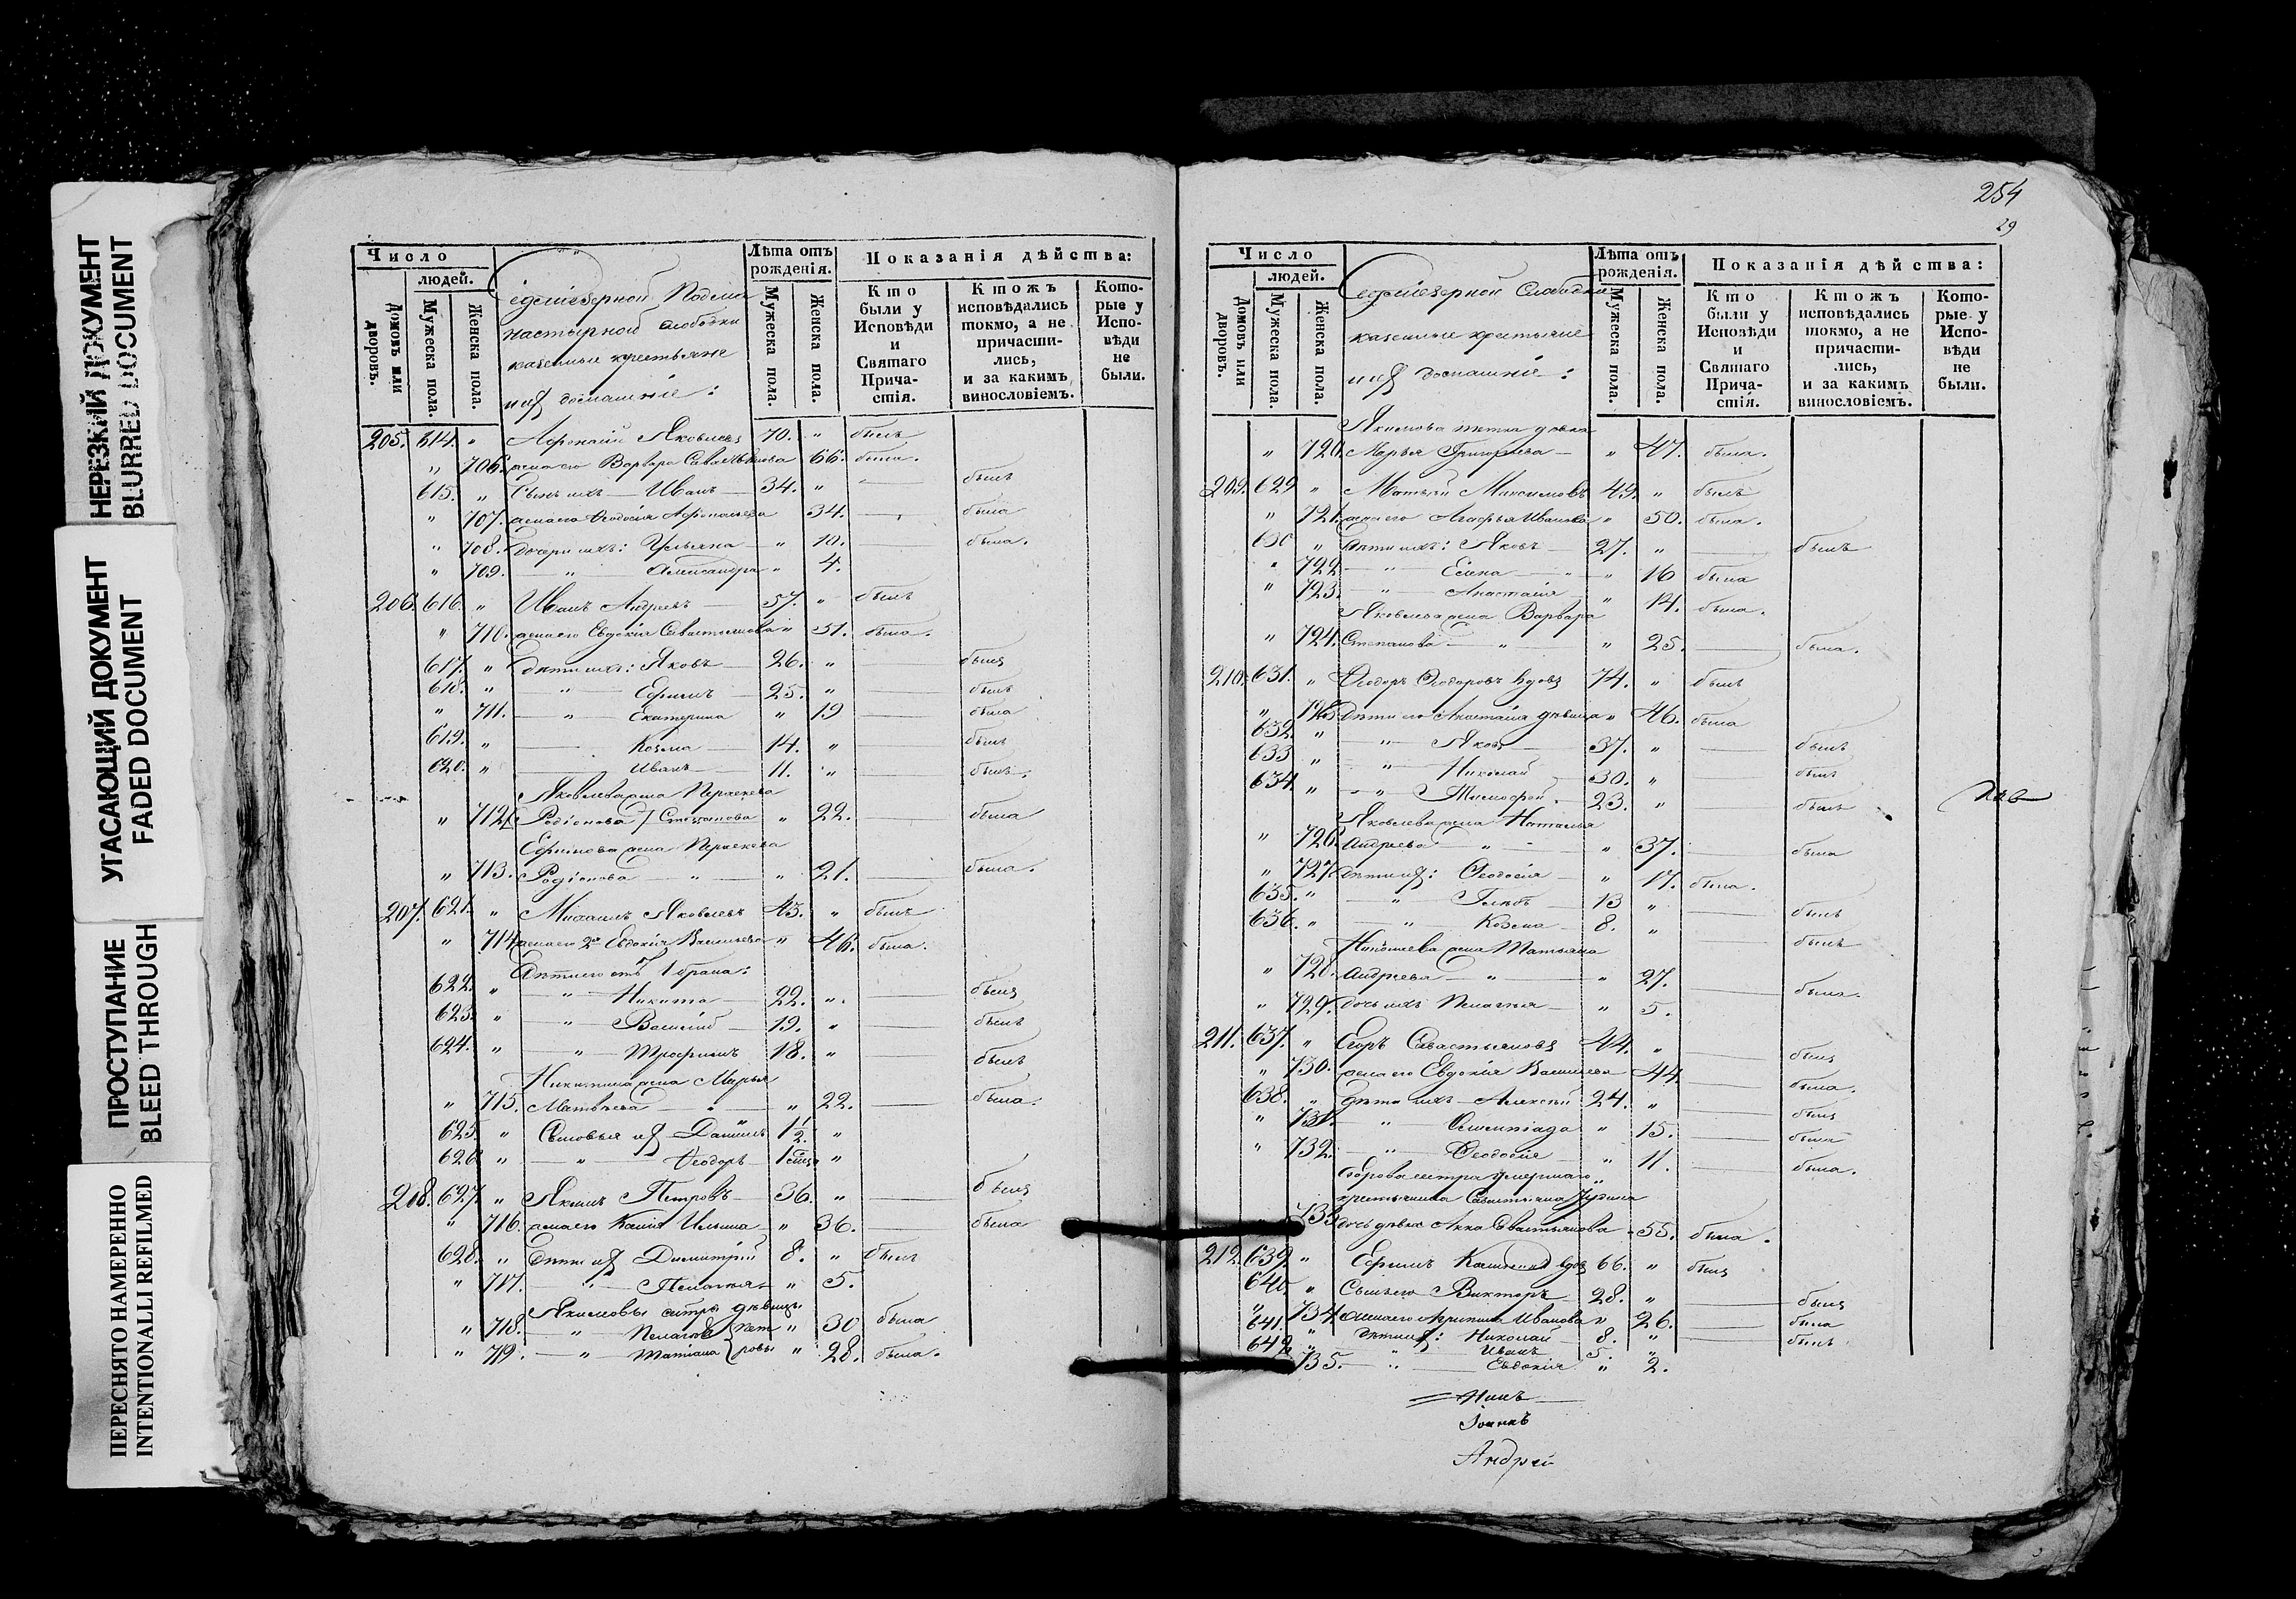 НЕРЕЗКИЙ ДОКУМЕНТ
BLURRED DOCUMENT
УГАСАЮЩИЙ ДОКУМЕНТ
FADED DOCUMENT
ПРОСТУПАНИЕ
BLEED THROUGH
ПЕРЕСНЯТО НАМЕРЕННО
INTENTIONALLI REFILMED
Число
людей.
Домовъ или дворовъ.
Мужеска пола.
Женска пола.
слободки
казенные крестьяне
ихъ домашніе:
Лѣта отъ рожденія.
Мужеска пола.
Женска пола.
Показанія дѣйства:
Кто были у Исповѣди и Святаго Причастія.
Ктожъ исповѣдались токмо, а не причастились, и за какимъ винословіемъ.
Которые у Исповѣди не были.
205. 614. " Яковлевъ 70. " былъ
" 706. жена его Варвара 66. была.
615. " Сынъ ихъ Иванъ 34. " былъ
" 707. жена его Ѳеодосія 34. была
" 708. Дочери ихъ: Ульяна " 10. была.
" 709. " Александра " 4.
206. 616. " Иванъ Андреевъ 57. " былъ
" 710. жена его Евдокія Савастьянова " 51. была.
617. " Дѣти ихъ: Яковъ 26. " былъ
618. " " Ефимъ 25. " былъ
" 711. " Екатерина " 19 была
619. " Козма 14. " былъ
620. " Иванъ 11. " былъ.
Яковлева жена Параскева
" 712. Родіонова / Степанова " 22. была
Ефимова жена Параскева
" 713. Родіонова " " 21. была.
207. 621. " Михаилъ Яковлевъ 43. " былъ
" 714. жена его 2я Евдокія Васильева " 46. была.
Дѣти его отъ 1 брака:
622. " " Никита 22. ". былъ
623. " " Василій 19. " былъ
624. " " Трофимъ 18. " былъ
Никитина жена Марья
" 715. Матвѣева " " 22. была.
625. " Сыновья ихъ Даніилъ 1½. "
626. " " Ѳеодоръ 1 "
208. 627. " Якимъ Петровъ 36. " былъ
" 716. жена его Ильина " 36. была
628. " Дѣти ихъ Димитрій 8. " былъ
" 717. " Пелагія " 5.
Якимовы сестры дѣвицы
" 718. " Пелагія } Пет " 30 была
" 719. " Татіана } ровы " 28. была.
254
29
Число
людей.
Домовъ или дворовъ.
Мужеска пола.
Женска пола.
Слободки
казенные крестьяне
ихъ домашніе:
Лѣта отъ рожденія.
Мужеска пола.
Женска пола.
Показанія дѣйства:
Кто были у Исповѣди и Святаго Причастія.
Ктожъ исповѣдались токмо, а не причастились, и за какимъ винословіемъ.
Которые у Исповѣди не были.
Якимова тетка дѣвка
" 720. Марья Григорьева " 47. была.
209. 629 " Матвѣй Максимовъ 49. " былъ
" 721. жена его Агафья Иванова " 50. была.
630 " Дѣти ихъ: Яковъ 27. " былъ
" 722 " Елена " 16 была
" 723. " Анастасія " 14. была.
Яковлева жена Варвара
" 724. Степанова " " 25. была.
210. 631. " Ѳеодоръ Ѳеодоровъ вдовъ 74. " былъ
" 725. Дѣти его Анастасія дѣвица " 46. была
632. " " Яковъ 37. " былъ
633 " " Николай 30. " былъ
634 " " Тимофей 23. " былъ
Яковлева жена Наталья
" 726. Андреева " " 37. была
" 727. Дѣти ихъ: Ѳеодосія " 17. была.
635. " " Глѣбъ 13 " былъ
636. " " Козма 8. " былъ
Николаева жена Татьяна
" 728. Андреева " " 27. была.
" 729. дочь ихъ Пелагія " 5.
211. 637. " Егоръ Савастьяновъ 44. " былъ
" 730. жена его Евдокія Васильева 44. была.
638. " Дѣти ихъ Алексѣй 24. " былъ
" 731. " Олимпіада " 15. была
" 732. " Ѳеодосія " 11. была.
Егорова сестра умершаго
крестьянина Савастьяна
733 дочь дѣвка Анна Савастьянова 55. была.
212. 639. " Ефимъ вдовъ 66. " былъ
640 " Сынъ его Викторъ 28. " былъ
" 734. жена его Агрипина Иванова " 26. была
641. " Дѣти ихъ: Николай 8. " былъ
642. " " Иванъ 5. "
735. " Евдокія " 2.
Іоаннъ
Андрей